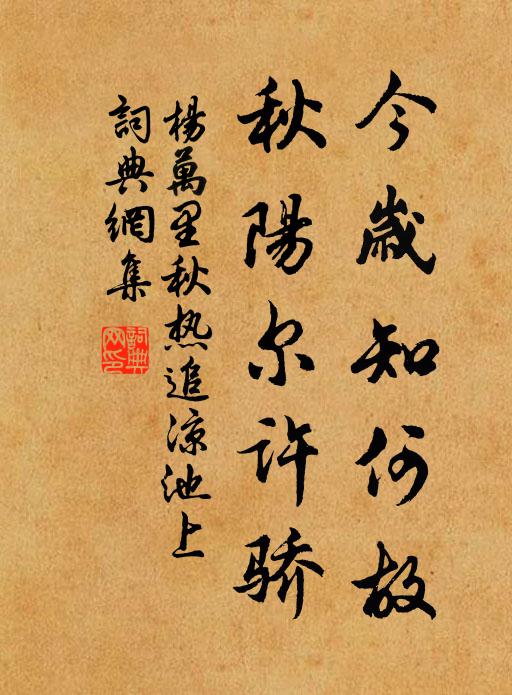 今歲知何故
秋陽尔許骄
楊萬里秋热追凉池上
詞典網集
詞典网印